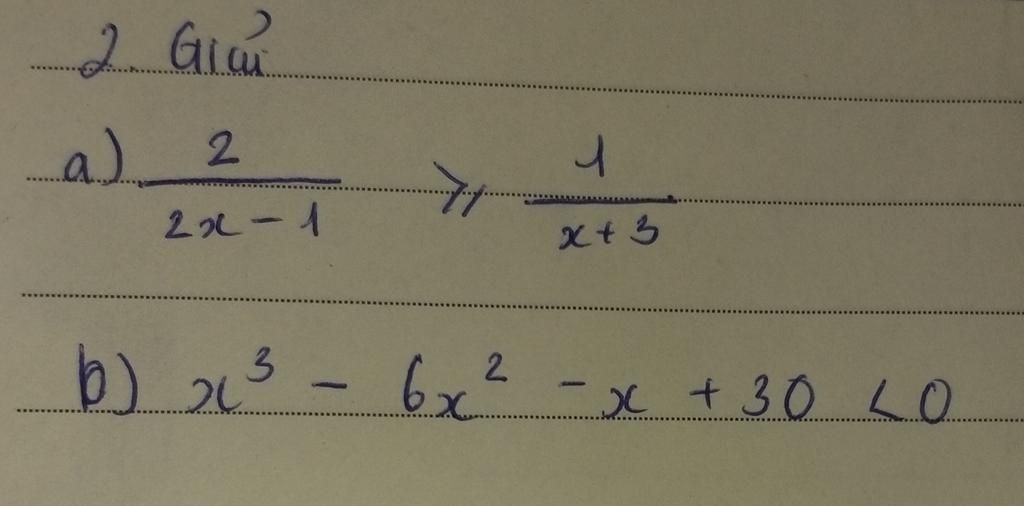 2. Giải
a) 2/(2x - 1) ⩾ 1/(x + 3)
b) x³ - 6x² - x + 30 < 0